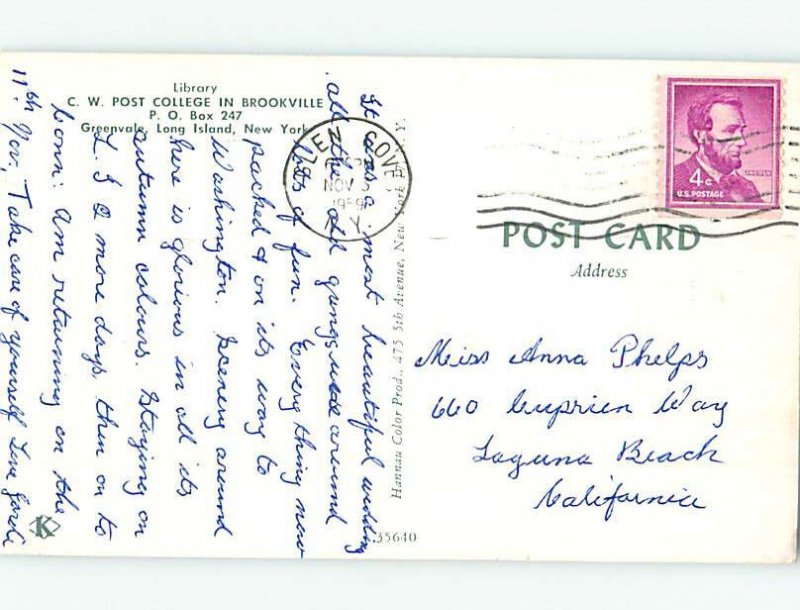 Library
C. W. POST COLLEGE IN BROOKVILLE
P. O. Box 247
Greenvale, Long Island, New York
It was a most beautiful wedding
all the old gungs were around
lots of fun. Every thing now
packed & on its way to
Washington. Scenery around
here is glorious in all its
autumn colours. Staying on
L. I 2 more days, then on to
Conn: Am returning on the
11th Nov, Take care of yourself Love
GLEN COVE
NOV 5
1959
N.Y.
Hannau Color Prod., 475 5th Avenue, New York N.Y.
35640
4¢
LINCOLN
U.S. POSTAGE
POST CARD
Address
Miss Anna Phelps
660 Cuprien Way
Laguna Beach
California
K